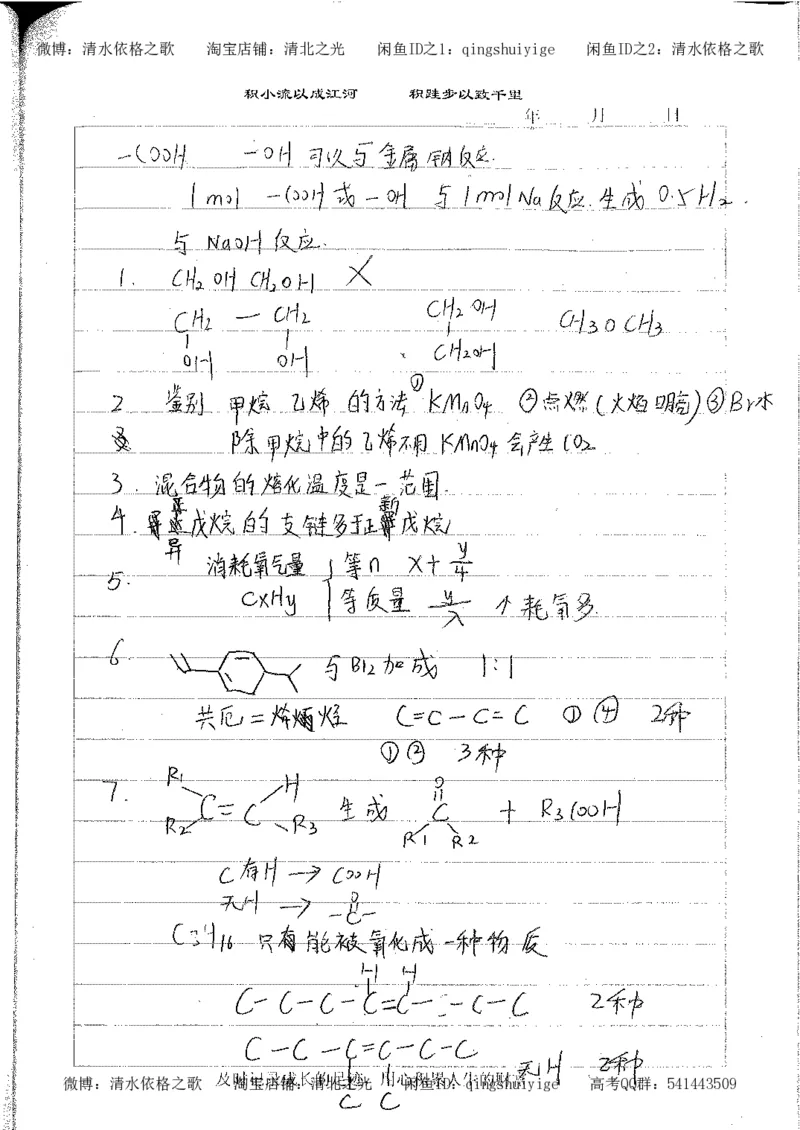 微博：清水依格之歌 淘宝店铺：清北之光 闲鱼ID之1：qingshuiyige 闲鱼ID之2：清水依格之歌
积小流以成江河 积跬步以致千里
年 月 日
-COOH -OH 可以与金属钠反应.
1 mol -COOH 或 -OH 与 1 mol Na 反应生成 0.5 H2.
与 NaOH 反应.
1. CH2 OH CH2OH X
CH2 - CH2 CH2 OH CH3 O CH3
OH OH CH2OH
2 鉴别 甲烷 乙烯 的方法 ① KMnO4 ②点燃(火焰明亮) ③Br水
除甲烷中的乙烯不用 KMnO4 会产生 CO2
3. 混合物的熔化温度是一范围.
4. 异戊烷的支链多于正戊烷 新
5. 消耗氧气量 等n x+ y/4
CxHy 等质量 y/x 个耗氧多.
6 与Br2加成 1:1
共厄=烯烃 C=C-C=C ① ④ 2种
①② 3种
7. R1 H O
R2 C=C R3 生成 C + R3COOH
R1 R2
C 有H → COOH
无H → -C- O
C H16 只有能被氧化成一种物质
H H
C-C-C-C=C- -C-C 2种
C-C-C=C-C-C 无H 2种
及时记录成长的足迹 用心积累人生的财
C C
微博：清水依格之歌 淘宝店铺：清北之光 闲鱼ID：qingshuiyige 高考QQ群：541443509